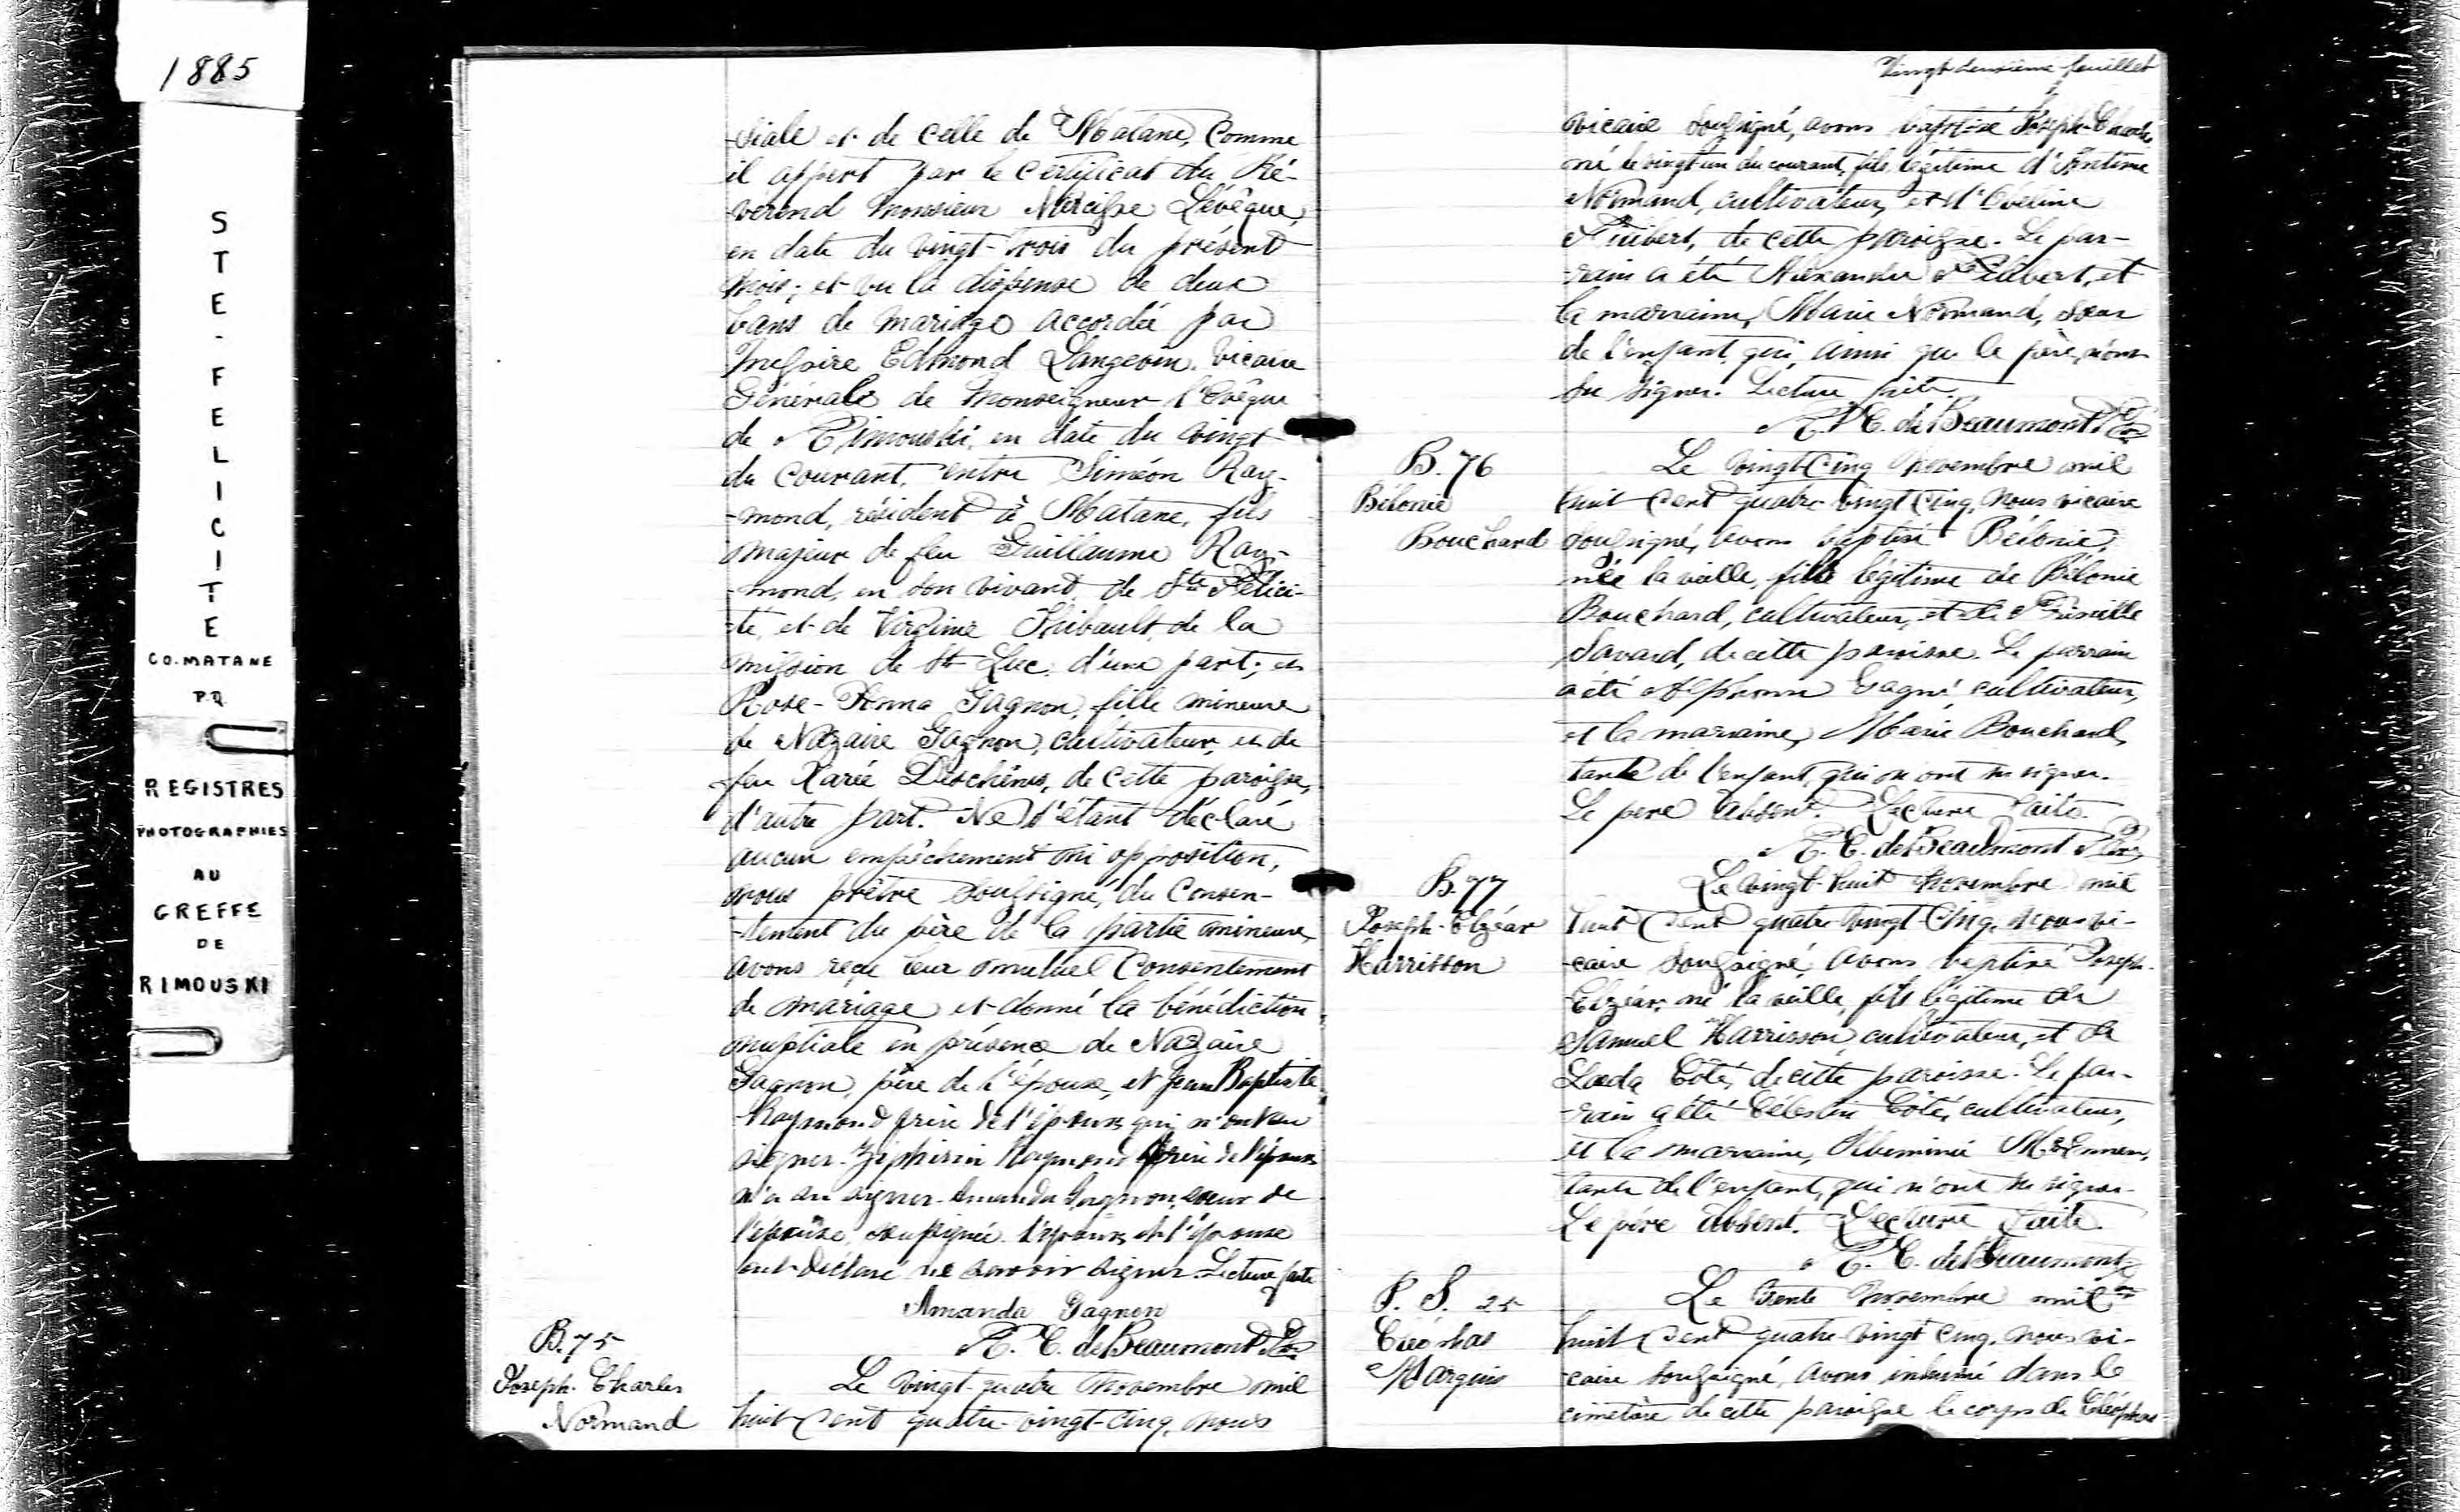 1885
STE-FELICITE
CO. MATANE
P.Q.
REGISTRES
PHOTOGRAPHIES
AU
GREFFE
DE
RIMOUSKI
-siale et de celle de Matane, comme
il appert par le certificat du Ré-
-vérend Monsieur Narcisse Lévêque,
en date du vingt-trois du présent
mois; et vu la dispense de deux
bans de mariage accordée par
Messire Edmond Langevin, Vicaire
Générale de Monseigneur l'Evêque
de Rimouski, en date du vingt
du courant, entre Siméon Ray-
-mond, résident à Matane, fils
majeur de feu Guillaume Ray-
-mond, en son vivant, de Ste Félici-
-té, et de Virginie Thibault, de la
mission de St Luc, d'une part; et
Rose-Anna Gagnon, fille mineure
de Nazaire Gagnon, cultivateur, et de
feu Deschênes, de cette paroisse,
d'autre part. Ne s'étant déclaré
aucun empêchement ni opposition,
nous prêtre soussigné, du consen-
-tement du père de la partie mineure,
avons reçu leur mutuel consentement
de mariage et donné la bénédiction
nuptiale en présence de Nazaire
Gagnon, père de l'épouse, et Jean Baptiste
Raymond frère de l'époux qui n'ont su
signer. Zéphirin Raymond frère de l'époux
n'a su signer. Amanda Gagnon, soeur de
l'épouse, soussignée. L'époux et l'épouse
ont déclaré ne savoir signer. Lecture faite
Amanda Gagnon
R. C. de Beaumont Ptre
B. 75
Joseph-Charles
Normand
Le vingt-quatre novembre mil
huit cent quatre-vingt-cinq, nous
Vingt deuxième feuillet
vicaire soussigné, avons baptisé Joseph-Charles
né le vingt un du courant, fils légitime d'Antime
Normand, cultivateur, et d'Eveline
, de cette paroisse. Le par-
-rain a été Alexandre , et
la marraine, Marie Normand, soeur
de l'enfant, qui, ainsi que le père, n'ont
su signer. Lecture faite.
R. C. de Beaumont Ptre
B. 76
Bélonie
Bouchard
Le vingt-cinq novembre mil
huit cent quatre-vingt cinq, nous vicaire
soussigné, avons baptisé Bélonie,
née la veille, fille légitime de Bélonie
Bouchard, cultivateur, et de
Savard, de cette paroisse. Le parrain
a été Gagné, cultivateur,
et la marraine, Marie Bouchard,
tante de l'enfant, qui n'ont su signer.
Le père absent. Lecture faite.
R. C. de Beaumont Ptre
B. 77
Joseph-Elzéar
Harrisson
Le vingt-huit novembre mil
huit cent quatre-vingt-cinq, nous vi-
-caire soussigné, avons baptisé Joseph-
Elzéar, né la veille, fils légitime de
Samuel Harrisson, cultivateur, et de
Léda Côté, de cette paroisse. Le par-
-rain a été Célestin Côté, cultivateur,
et la marraine,
tante de l'enfant, qui n'ont su signer.
Le père absent. Lecture faite.
R. C. de Beaumont
P. S. 25
Cléophas
Marquis
Le trente novembre mil
huit cent quatre-vingt cinq, nous vi-
-caire soussigné, avons inhumé dans le
cimetière de cette paroisse le corps de Cléophas